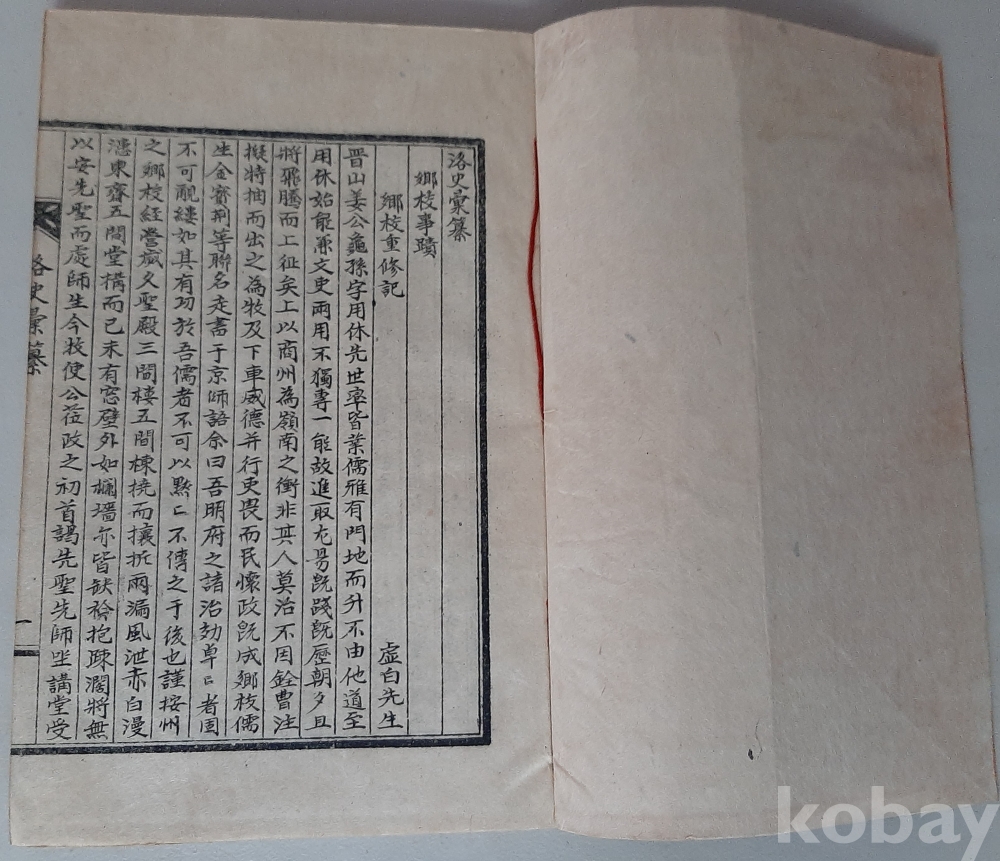 洛史彙纂
鄕校事蹟
鄕校重修記 虛白先生
晋山姜公龜孫字用休先世率皆業儒雅有門地而升不由他道至
用休始能兼文吏兩用不獨專一能故進取尤易旣踐旣歷朝夕且
將飛騰而上征矣上以商州為嶺南之衝非其人莫治不因銓曹注
擬特揀而出之為牧及下車威德并行吏畏而民懷政旣成鄕校儒
生金賚荊等聯名走書于京師語余曰吾明府之諸治効卓卩者固
不可覼縷如其有功於吾儒者不可以黙〻不傳之于後也謹按州
之鄕校經營歲久聖殿三間樓五間棟撓而攘折兩漏風泄赤白漫
漶東齋五間堂構而已未有窓壁外如欄墻亦皆缺 抱踈濶將無
以安先聖而處師生今牧使公莅政之初首謁先聖先師坐講堂受
洛史彙纂
一
kobay